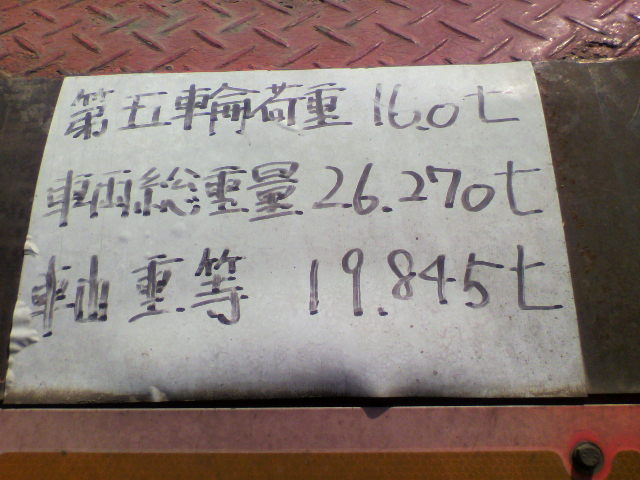 第五輪荷重 16.0t
車両総重量 26.270t
軸重等 19.845t